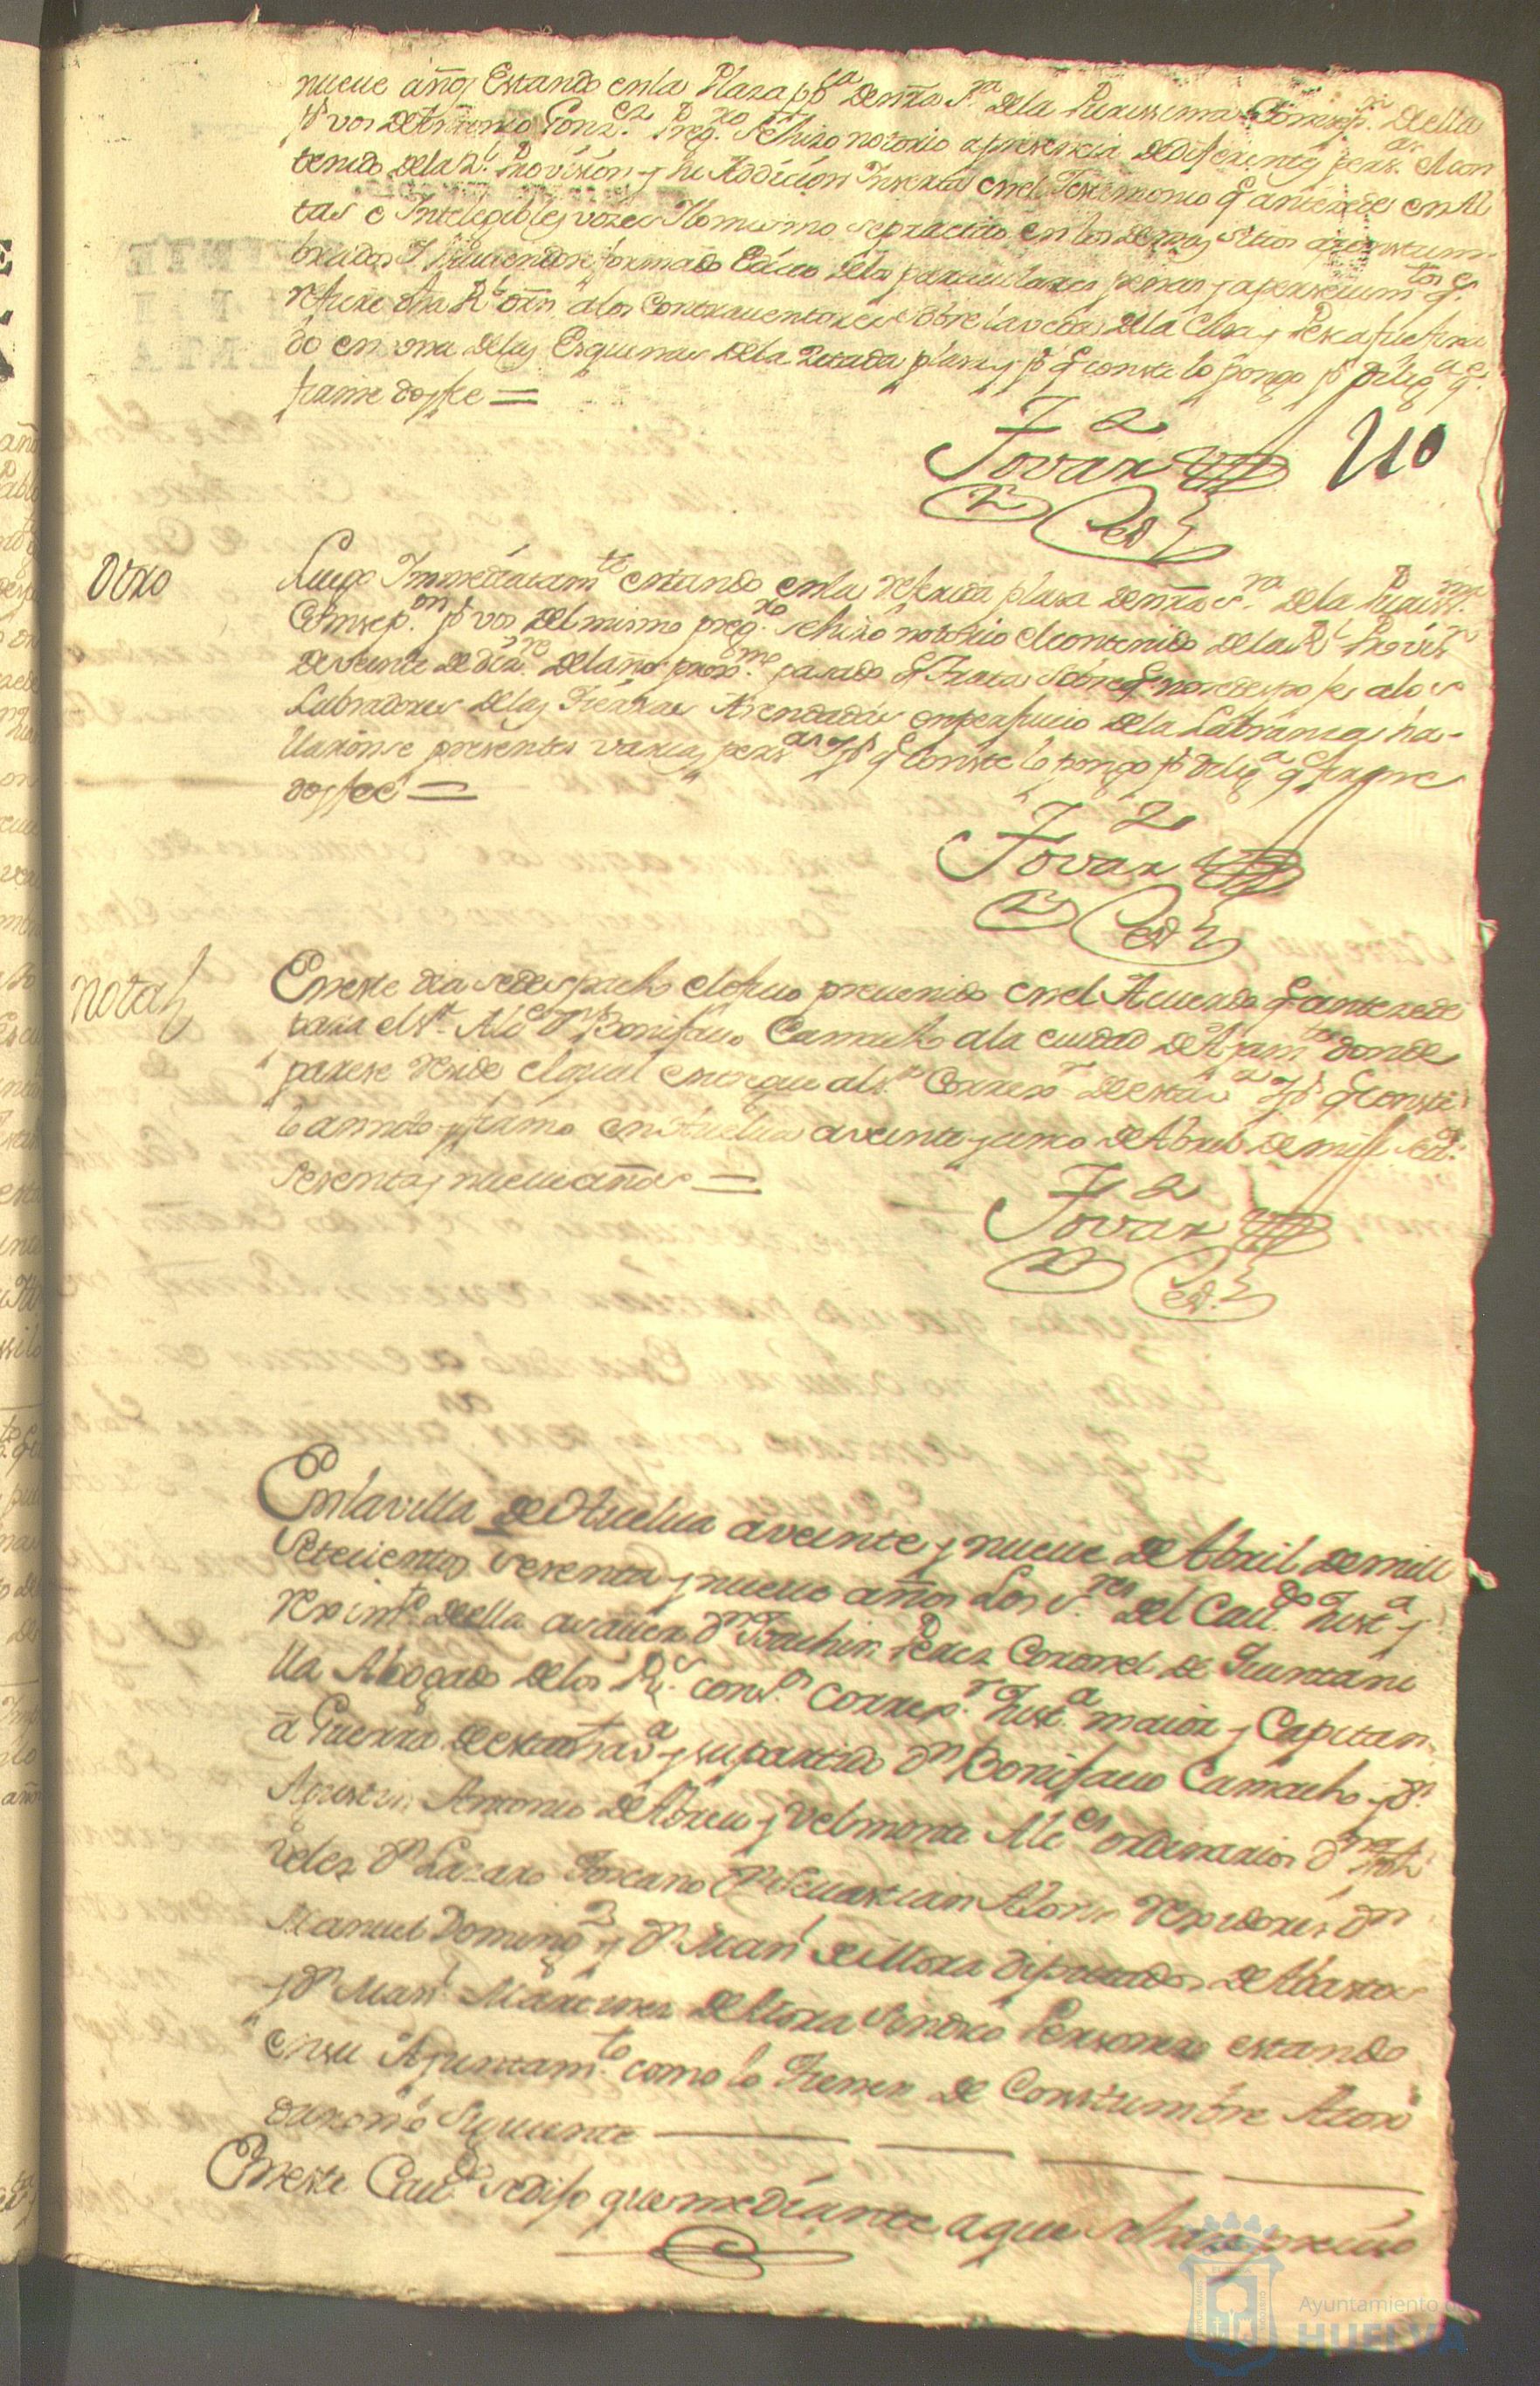 nueve años Estando en la Plaza pp.ca de nra S.ra de la Purissima Consep.on de ella
p.r vos de Antonio Gonz.ez Preg.ro se hizo notorio a presencia de diferentes pers.as el con
tenido de la R.l Provision y su Addicion Inserta en el Testimonio q.e antecede en Al
tas e Intelegibles vozes Y lo mismo se practico en los demas sitios acostum-
brados Y haviendose formado Edicto de las particulares penas y apersevim.tos q.e
refiere dha R.l orn a los Contraventores sobre la veda de la Caza y Pesca fue fixa
do en una de las Esquinas de la Zitada plaza y p.a q.e conste lo pongo p.r Dilig.a q.e
firme doy fee =
Tovar
110
Otro
Luego Immediatam.te estando en la referida plaza de nra S.ra de la Puriss.ma
Consep.on p.r vos del mismo preg.ro se hizo notorio el contenido de la R.l Provis.n
de veinte de diz.re del año prox.mo pasado q.e Trata sobre q.e no se despo jes a los
Labradores de las Tierras Arrendadas en perjuicio de la Labranza, ha-
llaronse presentes varias pers.as Y p.a q.e Conste lo pongo p.r dilig.a q.e firme
doy fee =
Tovar
nota
En este dia se despacho el ofisio prevenido en el Acuerdo q.e antezede
para el S.r Alc.e D.n Bonifacio Camacho a la ciudad de Ayam.te donde
parese reside el qual entregue al S.r Correx.r de esta v.a Y p.a q.e Conste
lo annoto y firmo en Huelva a veinte y cinco de Abril de mill set.s
sesenta y nueve años =
Tovar
En la villa de Huelva a veinte y nueve de Abril de mill
Setecientos sesenta y nueve años Los S.res del Cav.do Just.a y
reximt.o de ella a saver D.n Joachin Perez Coronel de Juntani
lla Abogado de los R.s cons.os Correx.r Just.a maior y Capitan
a Guerra de esta v.a y su partido D.n Bonifacio Camacho y D.n
Agustin Antonio de Abreu y Velmonte Alc.es ordinarios D.n
Velez D.n Lazaro Toscano D.n Sevastian Alonso rexidores D.n
Manuel Doming.z y D.n Man.l de Mora Diputados de Abastos
y D.n Man.l Martinez de Mora Sindico Personero estando
en su Ayuntam.to como lo Tienen de Constumbre Acor
daron lo Siguiente
En este Cav.do se dijo que mediante a que se hizo preciso
Ayuntamiento d
HUELVA